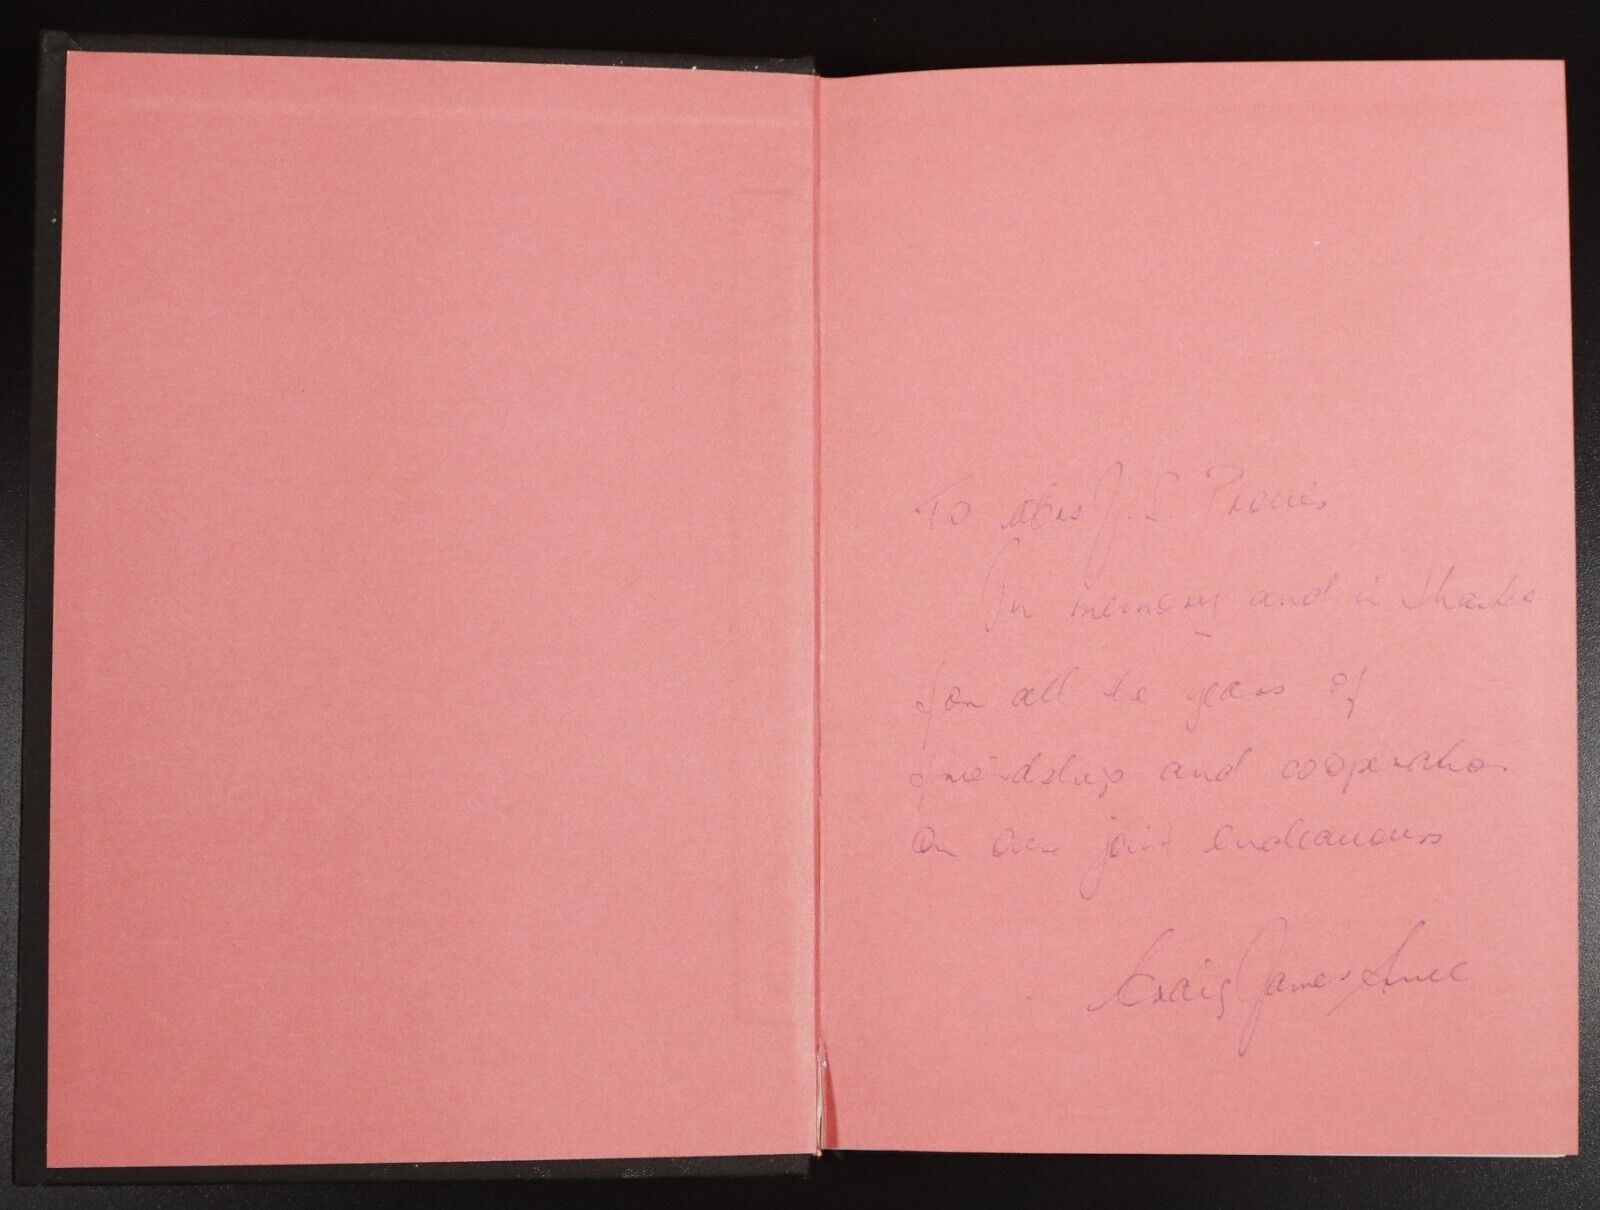 To Mrs J. S. Provis
In memory and in thanks
for all the years of
friendship and cooperation
on our joint endeavours
Craig James